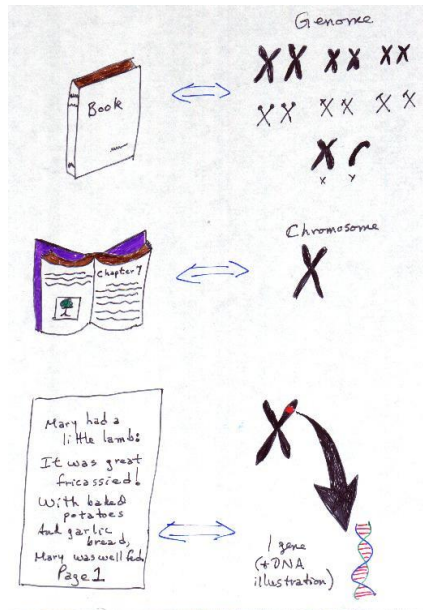 Genome
Book
x y
Chromosome
Chapter 7
Mary had a
little lamb:
It was great
fricassied!
With baked
potatoes
And garlic
bread,
Mary was well fed.
Page 1
1 gene
(+DNA
illustration)